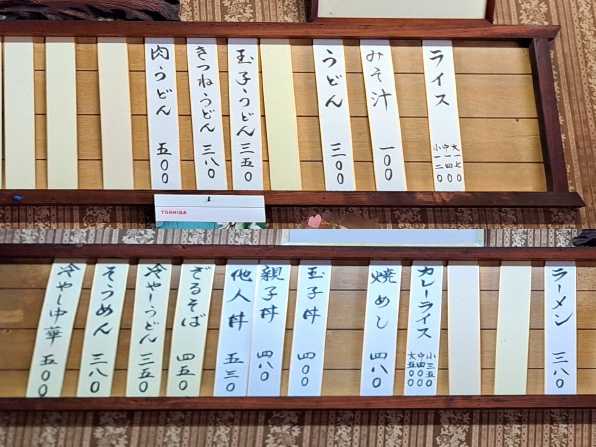 ライス 大一七〇 中一四〇 小一二〇
みそ汁 一〇〇
うどん 三〇〇
玉子うどん 三五〇
きつねうどん 三八〇
肉うどん 五〇〇
TOSHIBA
ラーメン 三八〇
カレーライス 小三五〇 中四〇〇 大五〇〇
焼めし 四八〇
玉子丼 四〇〇
親子丼 四八〇
他人丼 五三〇
ざるそば 四五〇
冷やしうどん 三五〇
そうめん 三八〇
冷やし中華 五〇〇